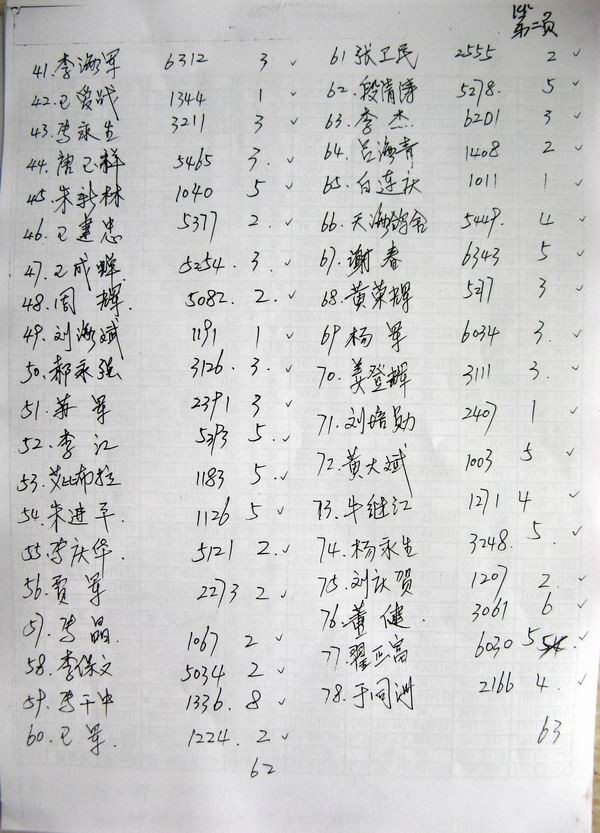 第二页
41. 李海军 6312 3 ✓
42. 王爱战 1344 1 ✓
43. 李永生 3211 3 ✓
44. 唐卫祥 5465 3. ✓
45. 朱新林 1040 5 ✓
46. 王建忠 5377 2. ✓
47. 王成辉 5254. 3. ✓
48. 周辉. 5082. 2. ✓
49. 刘海斌 1191 1 ✓
50. 郝永强 3126. 3. ✓
51. 苏军 2391 3 ✓
52. 李江 5393 5. ✓
53. 艾比布拉 1183 5. ✓
54. 朱进平. 1126 5 ✓
55. 李庆华. 5121 2. ✓
56. 贾军 2273 2 ✓
57. 李晶. 1067 2 ✓
58. 李保文 5034 2 ✓
59. 李干中 1336. 8 ✓
60. 王军. 1224. 2 ✓
62
61 张卫民 2555 2 ✓
62. 段清涛 5278. 5 ✓
63. 李杰. 6201 3 ✓
64. 吕海青 1408 2 ✓
65. 白连庆 1011 1 ✓
66. 天海鸽舍 5449. 4 ✓
67. 谢春 6343 5 ✓
68. 黄荣辉 5217 3 ✓
69. 杨军 6034 3. ✓
70. 姜登辉 3111 3. ✓
71. 刘培勋 2407 1 ✓
72. 黄大斌 1003 5 ✓
73. 牛继江 1271 4 ✓
74. 杨永生 3248. 5. ✓
75. 刘庆贺 1207 2. ✓
76. 董健. 3061 6 ✓
77. 翟正富 6030 5 ✓
78. 于同洲 2166 4. ✓
63